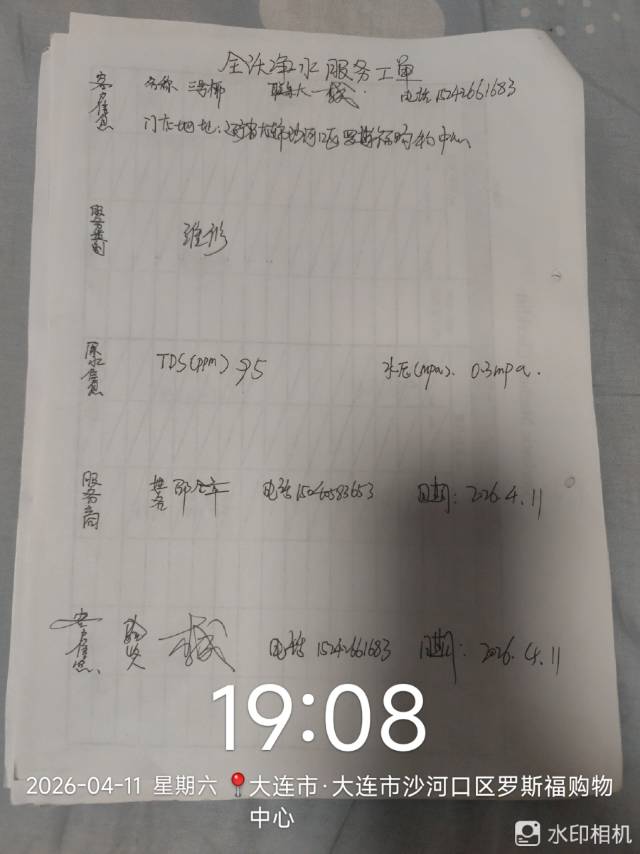 全沃净水服务工单
客户信息 名称 三号椰 联系人 电话15242661683
门店地址:辽宁省大连市沙河口区罗斯福购物中心
服务类别 维修
原水信息 TDS(ppm) 95 水压(mpa). 0.3mpa.
服务商 服务 电话15040583653 日期:2026.4.11
客户信息 验收 电话15242661683 日期:2026.4.11
19:08
2026-04-11 星期六 大连市·大连市沙河口区罗斯福购物中心
水印相机